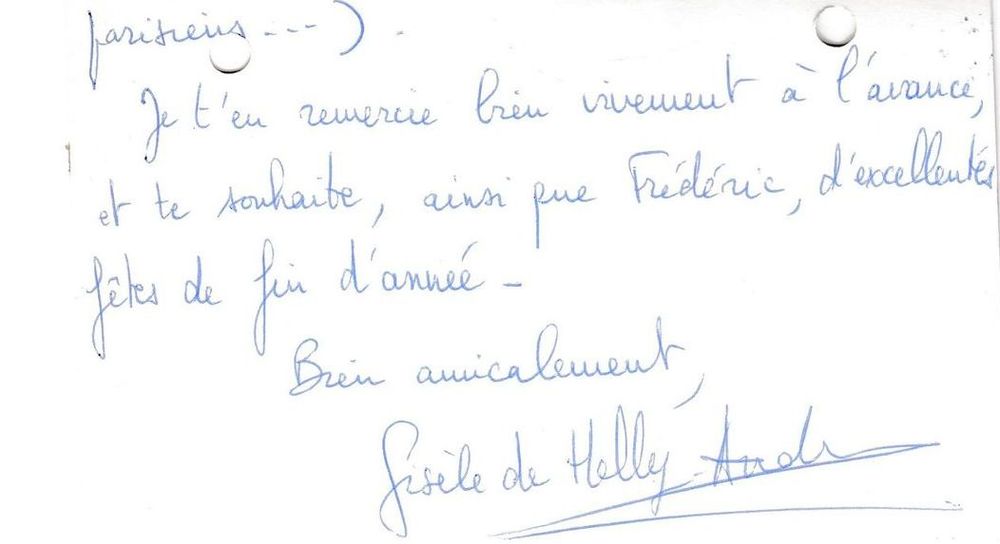 parisiens ---).
Je t'en remercie bien vivement à l'avance,
et te souhaite, ainsi que Frédéric, d'excellentes
fêtes de fin d'année -
Bien amicalement,
Gisèle de Helly